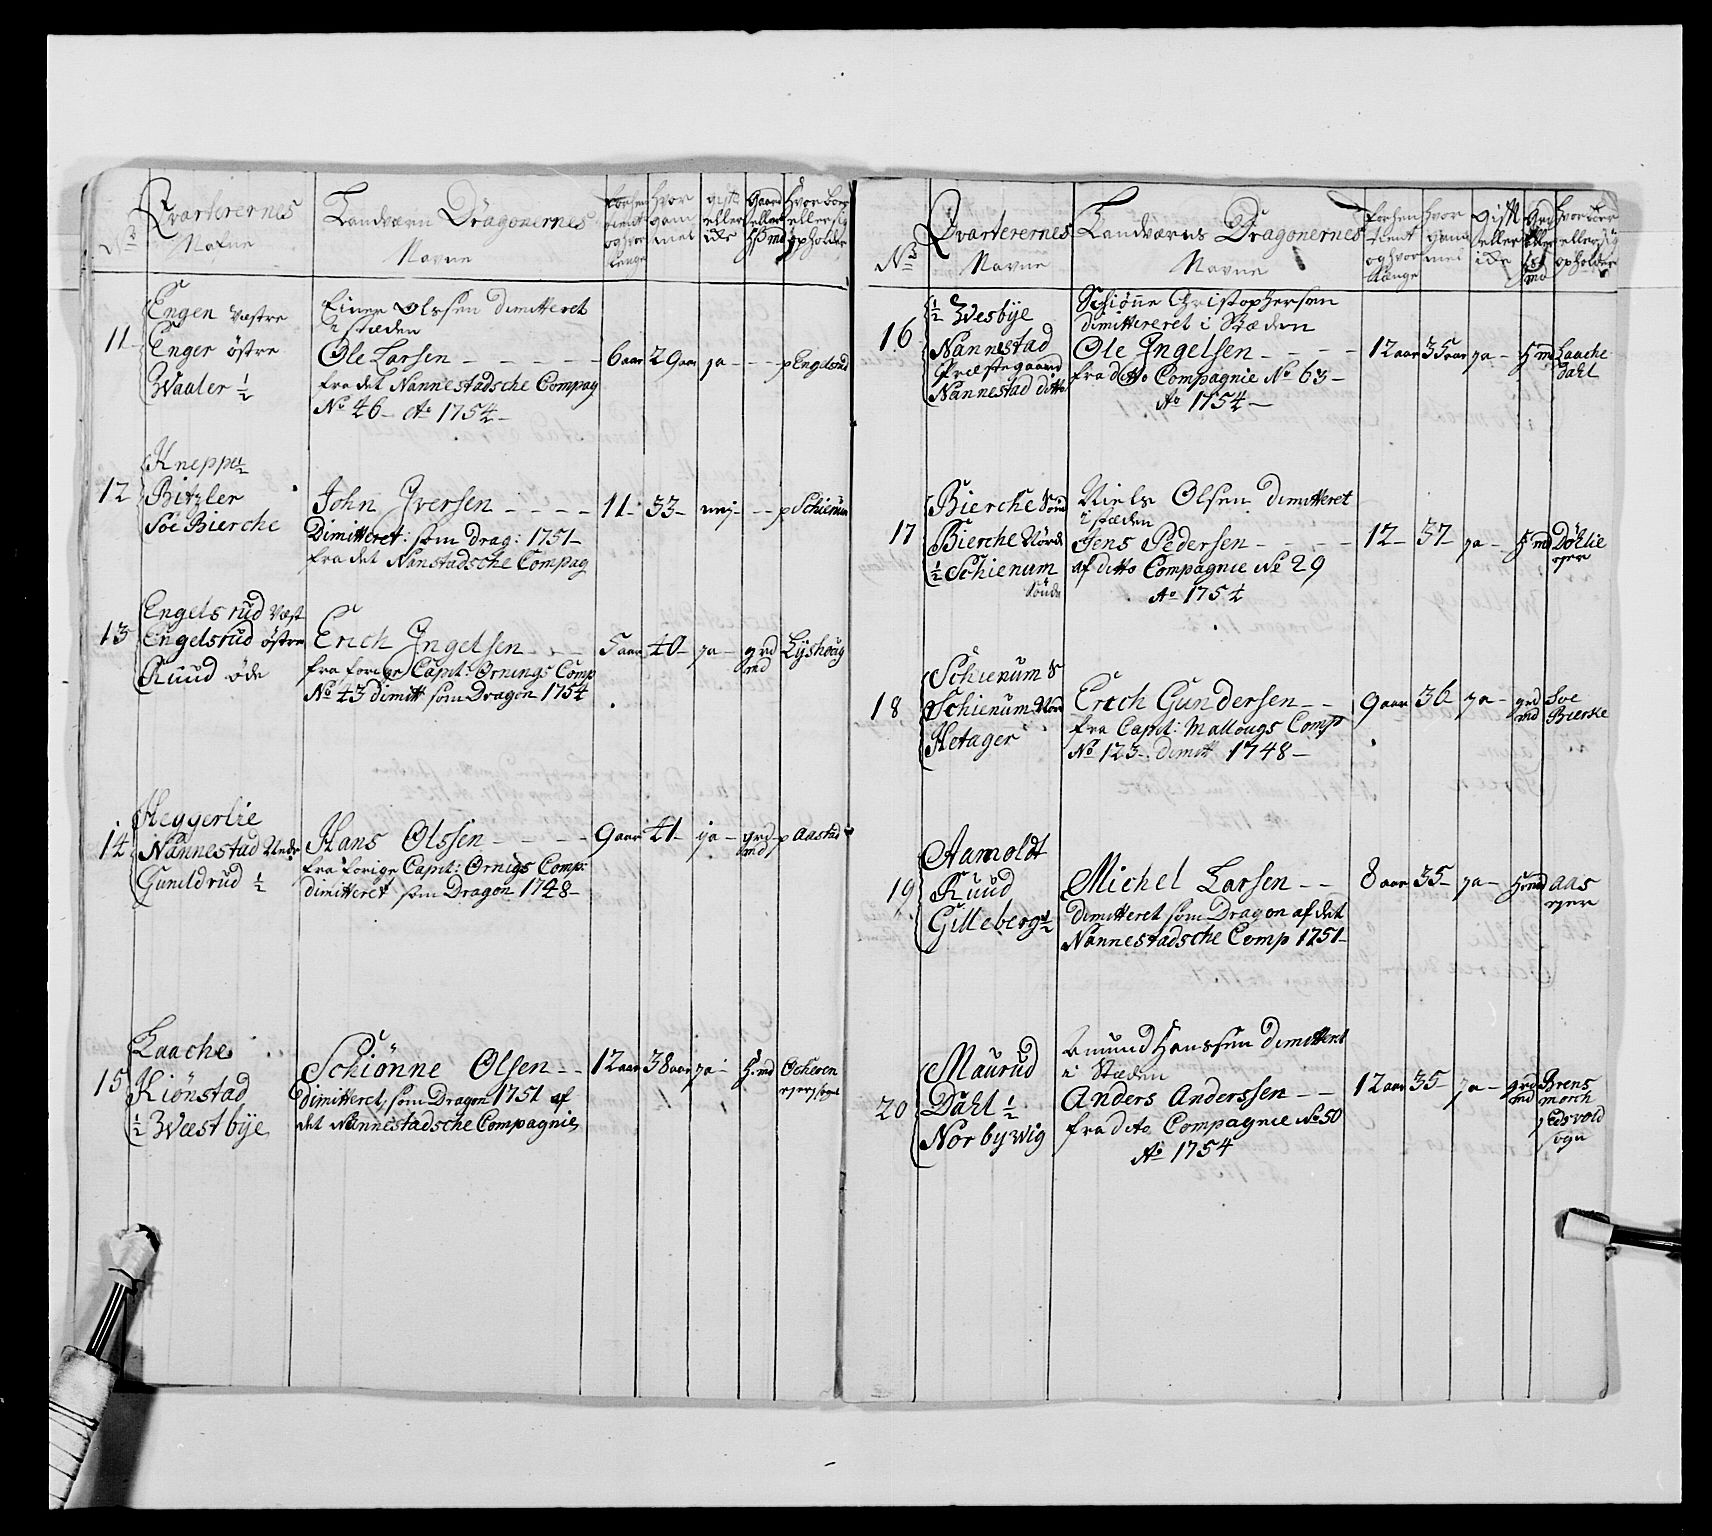 No Qvarterernes Navne
Landværn Dragonernes Navne
forhen tient og hvor længe
Hvor gam mel
gift eller ide
Gaard eller H:md
Hvor boer eller sig opholder
11
Engen Vestre
Enger östre
Waaler ½
Einer Olssen dimitteret
i stæden
Ole Larsen - - - - -
fra det Nannestadsche Compag
No 46 - Ao 1754 -
6 aar 29 aar ja - - - p Engelsrud
12
Kneppe ½
Bitzler
Söe Bierche
John Iversen - - - -
Dimitteret: som Drag: 1751 -
fra det Nanstadsche Compag
11 - 33 - nej - - - p Schienum
13
Engelsrud Væst
Engelsrud östre
Ruud öde
Erich Ingelsen - - -
fra forige Capit: Ornings Comp
No 43 dimitt som Dragon 1754
5 aar 40 - ja - grd md Lÿshoug
14
Heggerlie
Nannestad Nedr
Gunildrud ½
Hans Olssen - - - -
fra forige Capit: Ornigs Comp:
dimitteret som Dragon 1748 -
9 aar 41 - ja - grd md p Aastad
15
Laache
Kiönstad
½ Wæstbye
Schiönne Olsen - -
dimitteret som Dragon 1751 af
det Nannestadsche Compagnie
12 aar 38 aar ja - H:md Ocheren
No Qvarterernes Navne
Landværns Dragonernes Navne
forhen tient og hvor længe
Hvor gam mel
gift eller ide
Grd eller H md
hvor boer eller sig opholder
16
½ Wesbÿe
Nannestad
Præstegaard
Nannestad ditto
Schiönne Christophersen
dimittereret i Stæden
Ole Ingelsen - - - -
fra ditto Compagnie No 63 -
Ao 1754 -
12 aar 35 aar ja - H md Laache
Dahl
17
Bierche Sönd
Bierche Nörd
½ Schienum
Sönde
Niels Olsen dimitteret
i stæden
Jens Pedersen - - - -
af ditto Compagnie No 29
Ao 1754
12 - 37 - ja - H md Döhlie
ejer
18
Schienum S
Schienum Nör
Hetager
Erich Gundersen - -
fra Capit: Mallougs Comp
No 123 - dimitt 1748 -
9 aar 36 - ja - grd md Soe
Bierke
19
Aamoldt
Ruud
Gilleberg ½
Michel Larsen - -
dimitteret som Dragon af det
Nannestadsche Comp 1751 -
8 aar 35 - ja - H md Aas
ejer
20
Maurud
Dahl ½
Norbywig
Amund Hanssen dimitteret
i Stæden
Anders Anderssen - -
fra dito Compagnie No 50
Ao 1754
12 aar 35 - ja - grd md Brens
morch
Edsvold
sogn